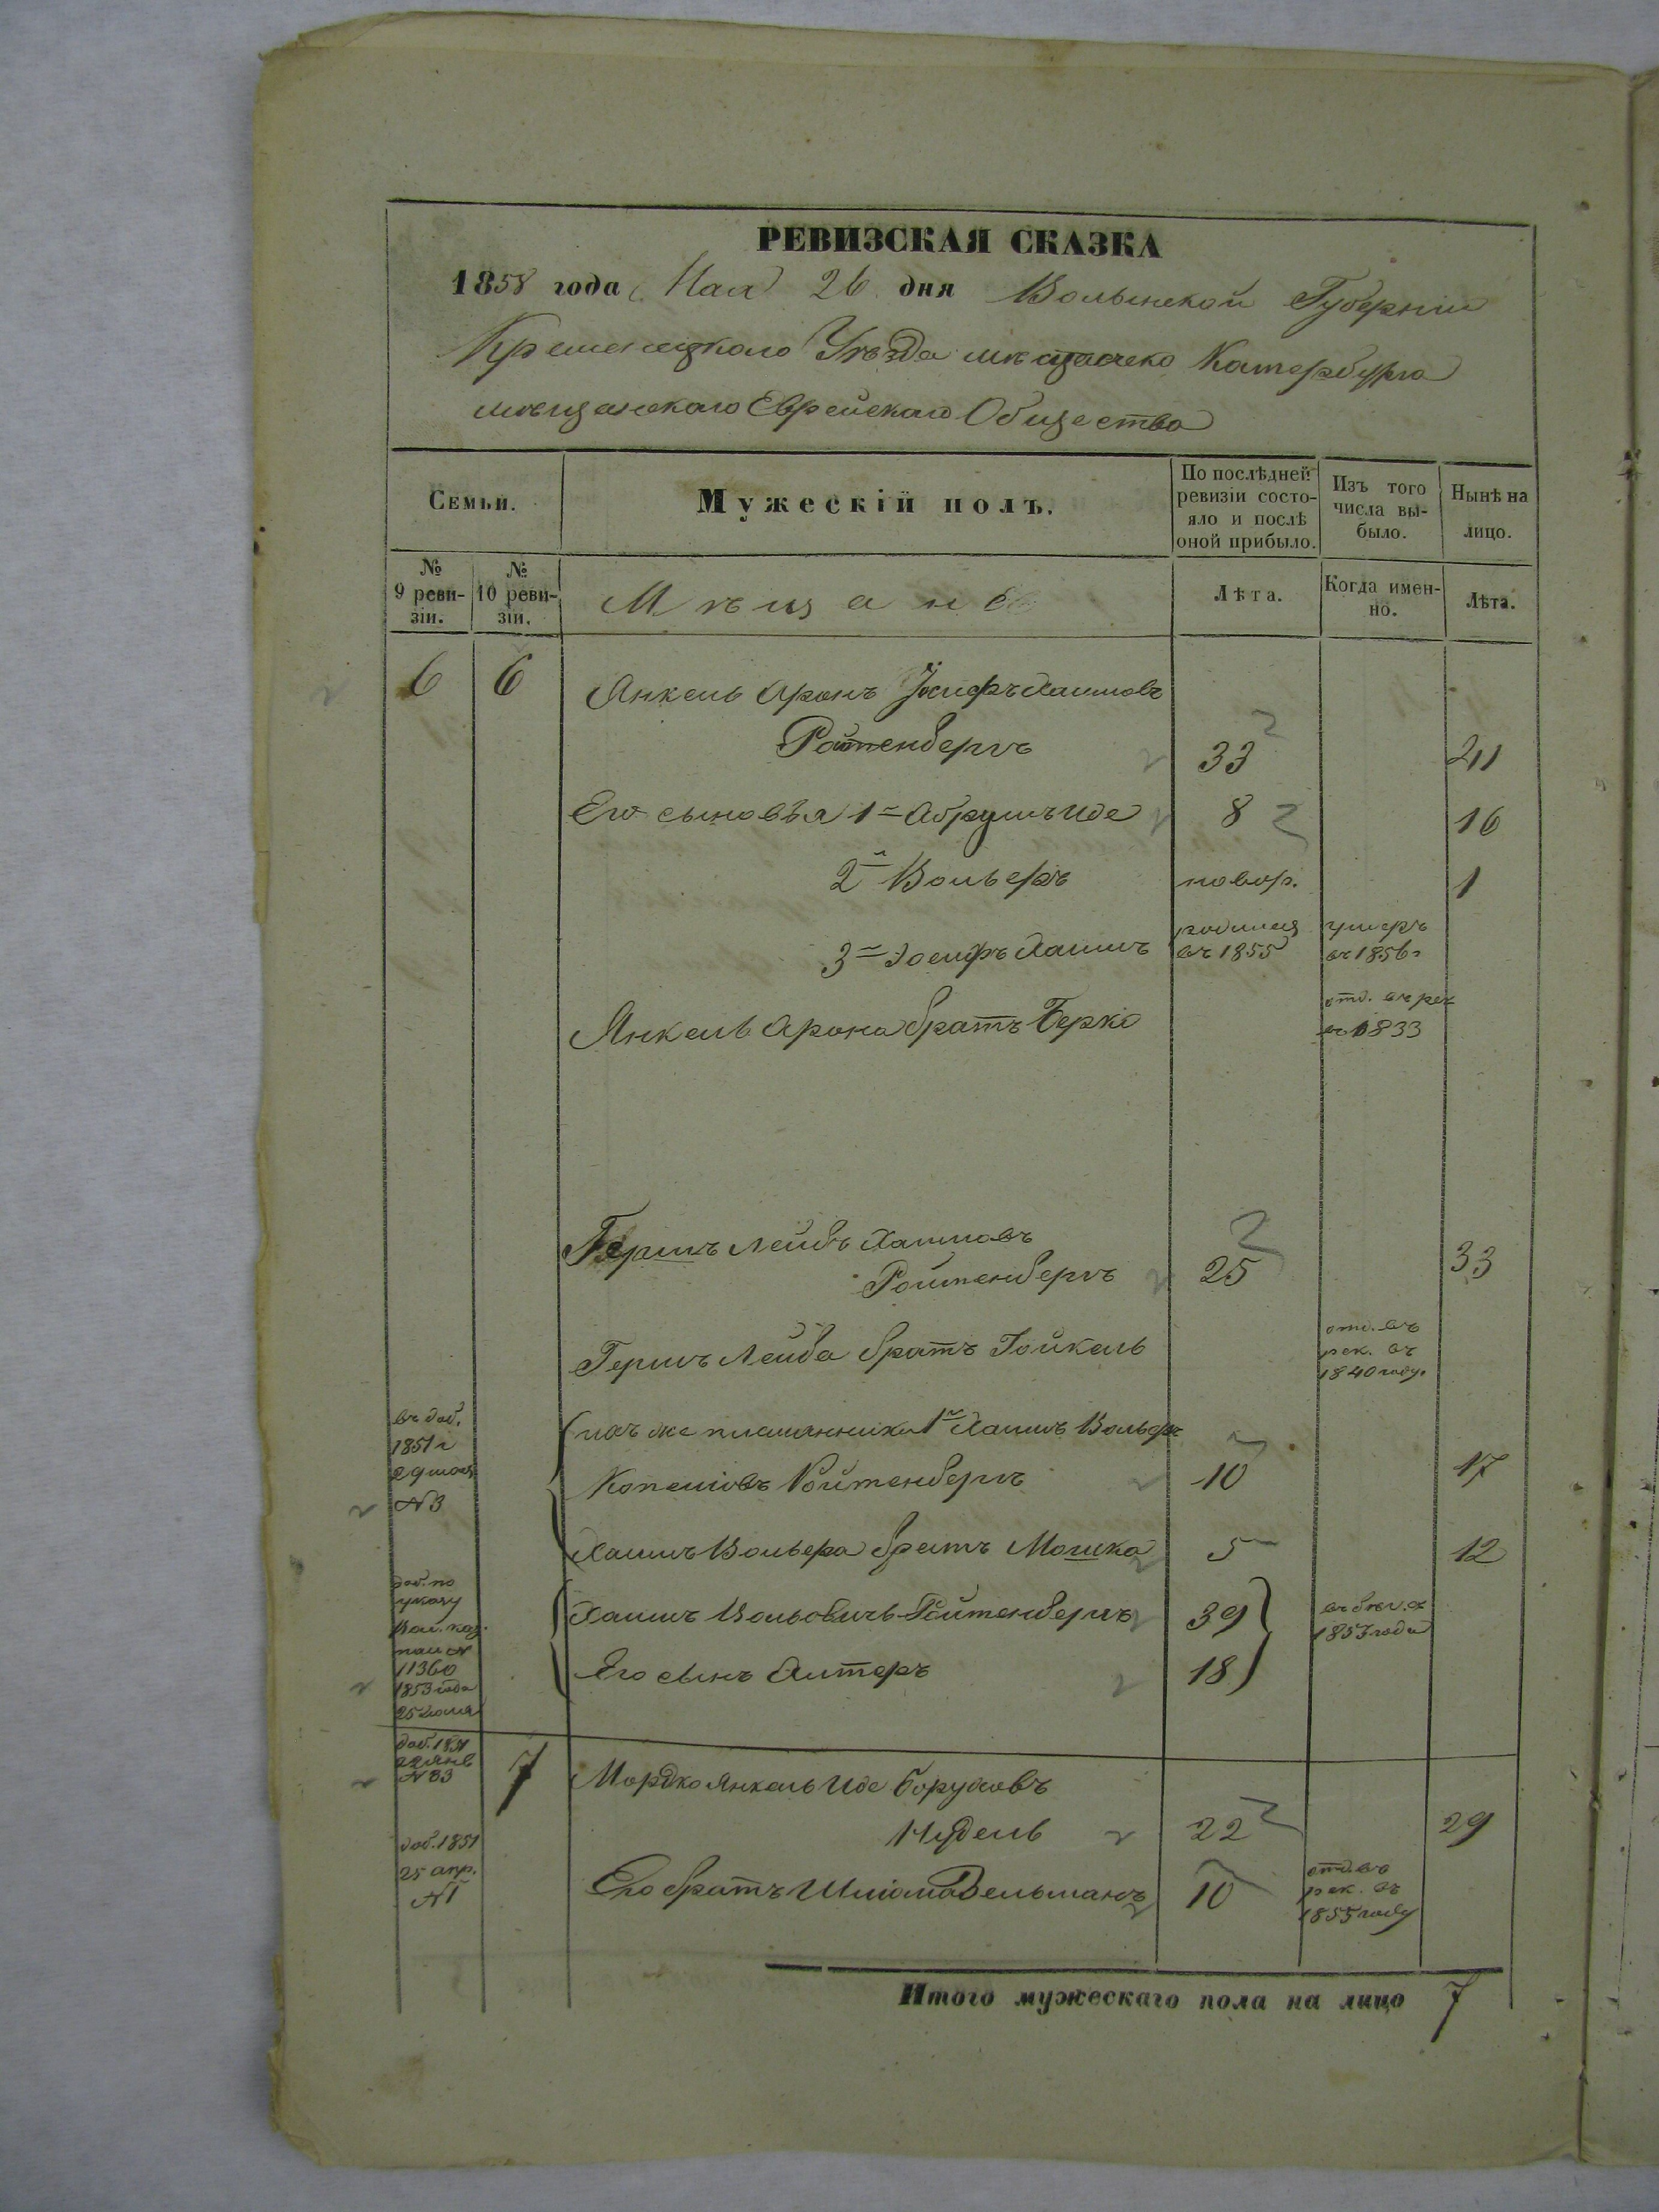 РЕВИЗСКАЯ СКАЗКА
1858 года Мая 26 дня Волынской Губерніи
Кременецкого Уѣзда мѣстечко Катербурга
мѣщанскаго Еврейскаго Общества
Семьи.
Мужескій полъ.
По послѣдней ревизіи состояло и послѣ оной прибыло.
Изъ того числа выбыло.
Нынѣ на лицо.
№ 9 ревизіи.
№ 10 ревизіи.
Мѣщане
Лѣта.
Когда именно.
Лѣта.
6 6 Янкель Аронъ Іосифъ Хаимовъ
Ройтенбергъ 33 41
Его сыновъя 1й Абрумъ Иде 8 16
2й Вольеръ новор. 1
3й Іосифъ Хаимъ родился въ 1855 умеръ въ 1856г
Янкель Арона братъ Берко отд. въ рек въ 1833
Гершъ Лейбъ Хаимовъ
Ройтенбергъ 25 33
Гершъ Лейба братъ Іойкель отд. въ рек. въ 1840 году.
въ доб. 1851г 29 №3
ихъ же племянники 1й Хаимъ Вольеръ
Копеліовъ Ройтенбергъ 10 17
Хаимъ Вольера братъ Мошка 5 12
доб. по указу Вол. каз. пал № 11360 1853 года 25 Іюля
Хаимъ Вольовичъ Ройтенбергъ 39 1857 года
Его сынъ Алтеръ 18
доб. 1851 22 янв №83
7 Мордко Янкель Иде Боруховъ
Нудель 22 29
доб. 1851 25 апр. №1
Его братъ Шліома Вельманъ 10 отд. въ рек. въ 1855 году
Итого мужескаго пола на лицо 7